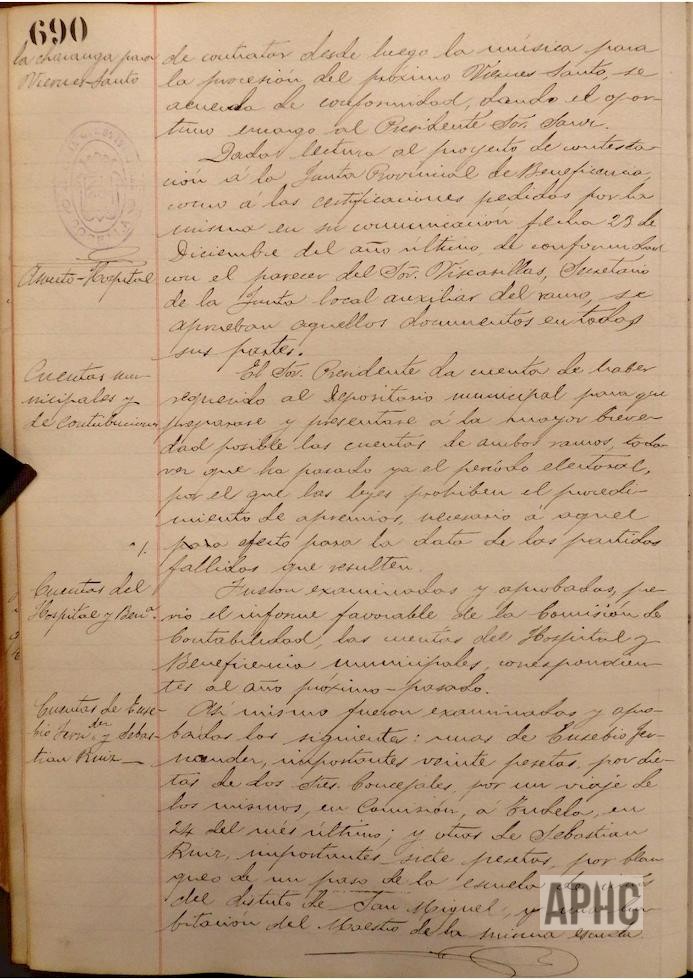 690
la charanga para
Viernes Santo
de contratar desde luego la música para
la procesión del próximo Viernes Santo, se
acuerda de conformidad, dando el opor-
tuno encargo al Presidente Sor.
Dada lectura al proyecto de contesta-
ción á la Junta Provincial de Beneficencia,
como a las certificaciones pedidas por la
misma en su comunicación fecha 23 de
Diciembre del año último, de conformidad
Asunto-Hospital
con el parecer del Sor. Viscasillas, Secretario
de la Junta local auxiliar del ramo, se
aprueban aquellos documentos en todas
sus partes.
Cuentas mu-
nicipales y
de contribucion
El Sor. Presidente da cuenta de haber
requerido al Depositario municipal para que
preparase y presentase á la mayor breve-
dad posible las cuentas de ambos ramos, toda
vez que ha pasado ya el período electoral,
por el que las leyes prohiben el procedi-
miento de apremios, necesario á aquel
para efecto para la data de las partidas
fallidas que resulten.
Cuentas del
Hospital y Benª.
Fueron examinadas y aprobadas, pre-
vio el informe favorable de la Comisión de
Contabilidad, las cuentas del Hospital y
Beneficencia municipales, correspondien-
tes al año próximo-pasado.
Cuentas de Euse-
bio Fernder y Sebas-
tian Ruiz
Asi mismo fueron examinadas y apro-
badas las siguientes: unas de Eusebio Fer-
nandez, importantes veinte pesetas, por die-
tas de dos Sres. Concejales, por un viaje de
los mismos, en Comisión, á Tudela, en
24 del més último; y otras de Sebastian
Ruiz, importantes siete pesetas, por blan
queo de un paso de la escuela de
del distrito de San Miguel, y
bitación del Maestro de la misma escuela
APHC